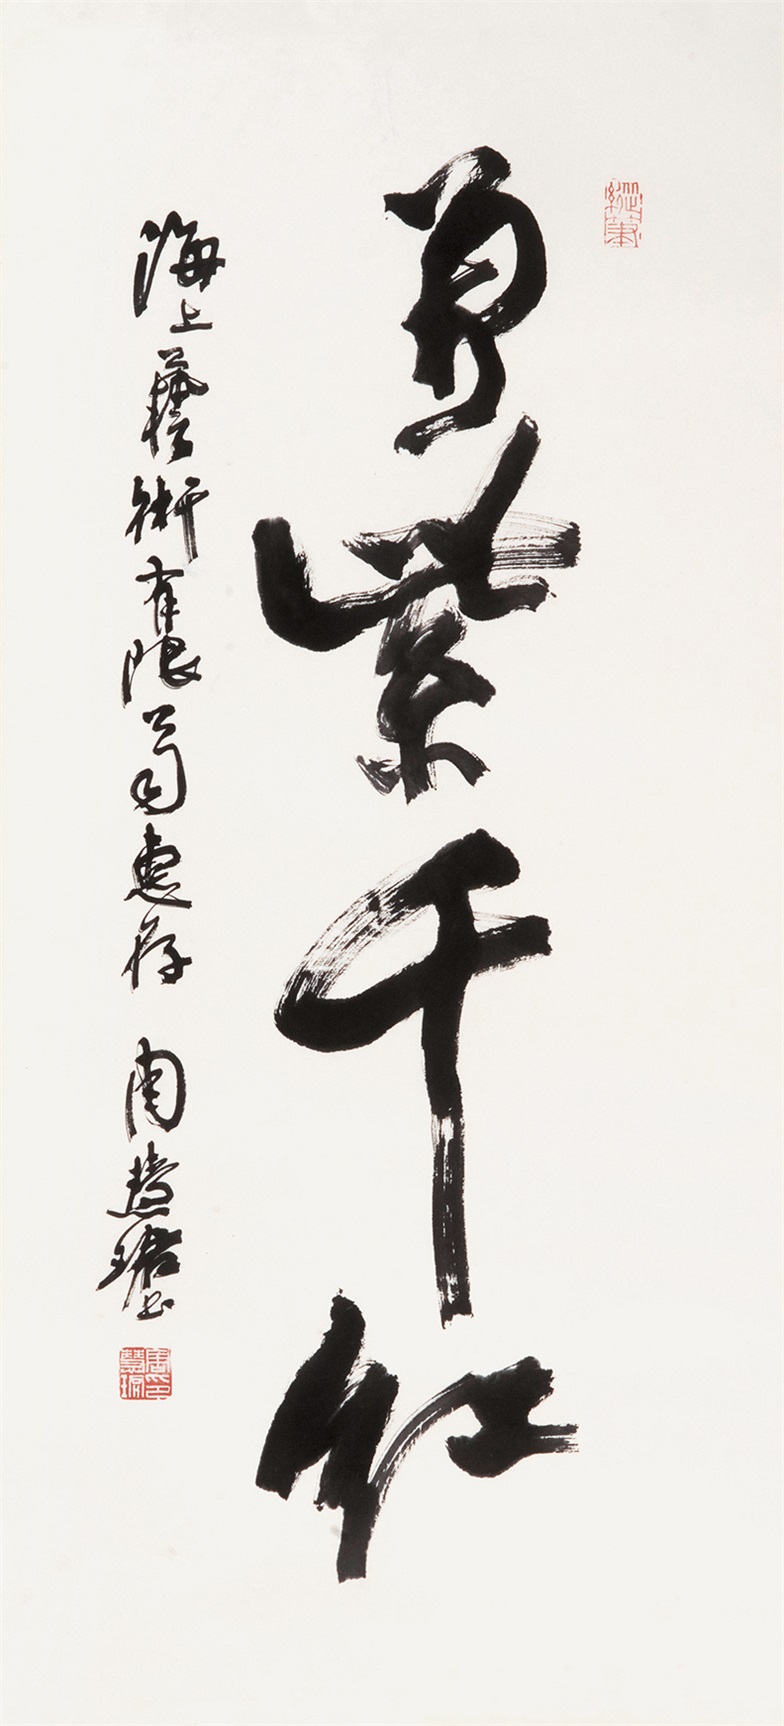 萬紫千紅
海上藝術有限公司惠存 周慧珺書
周印慧珺